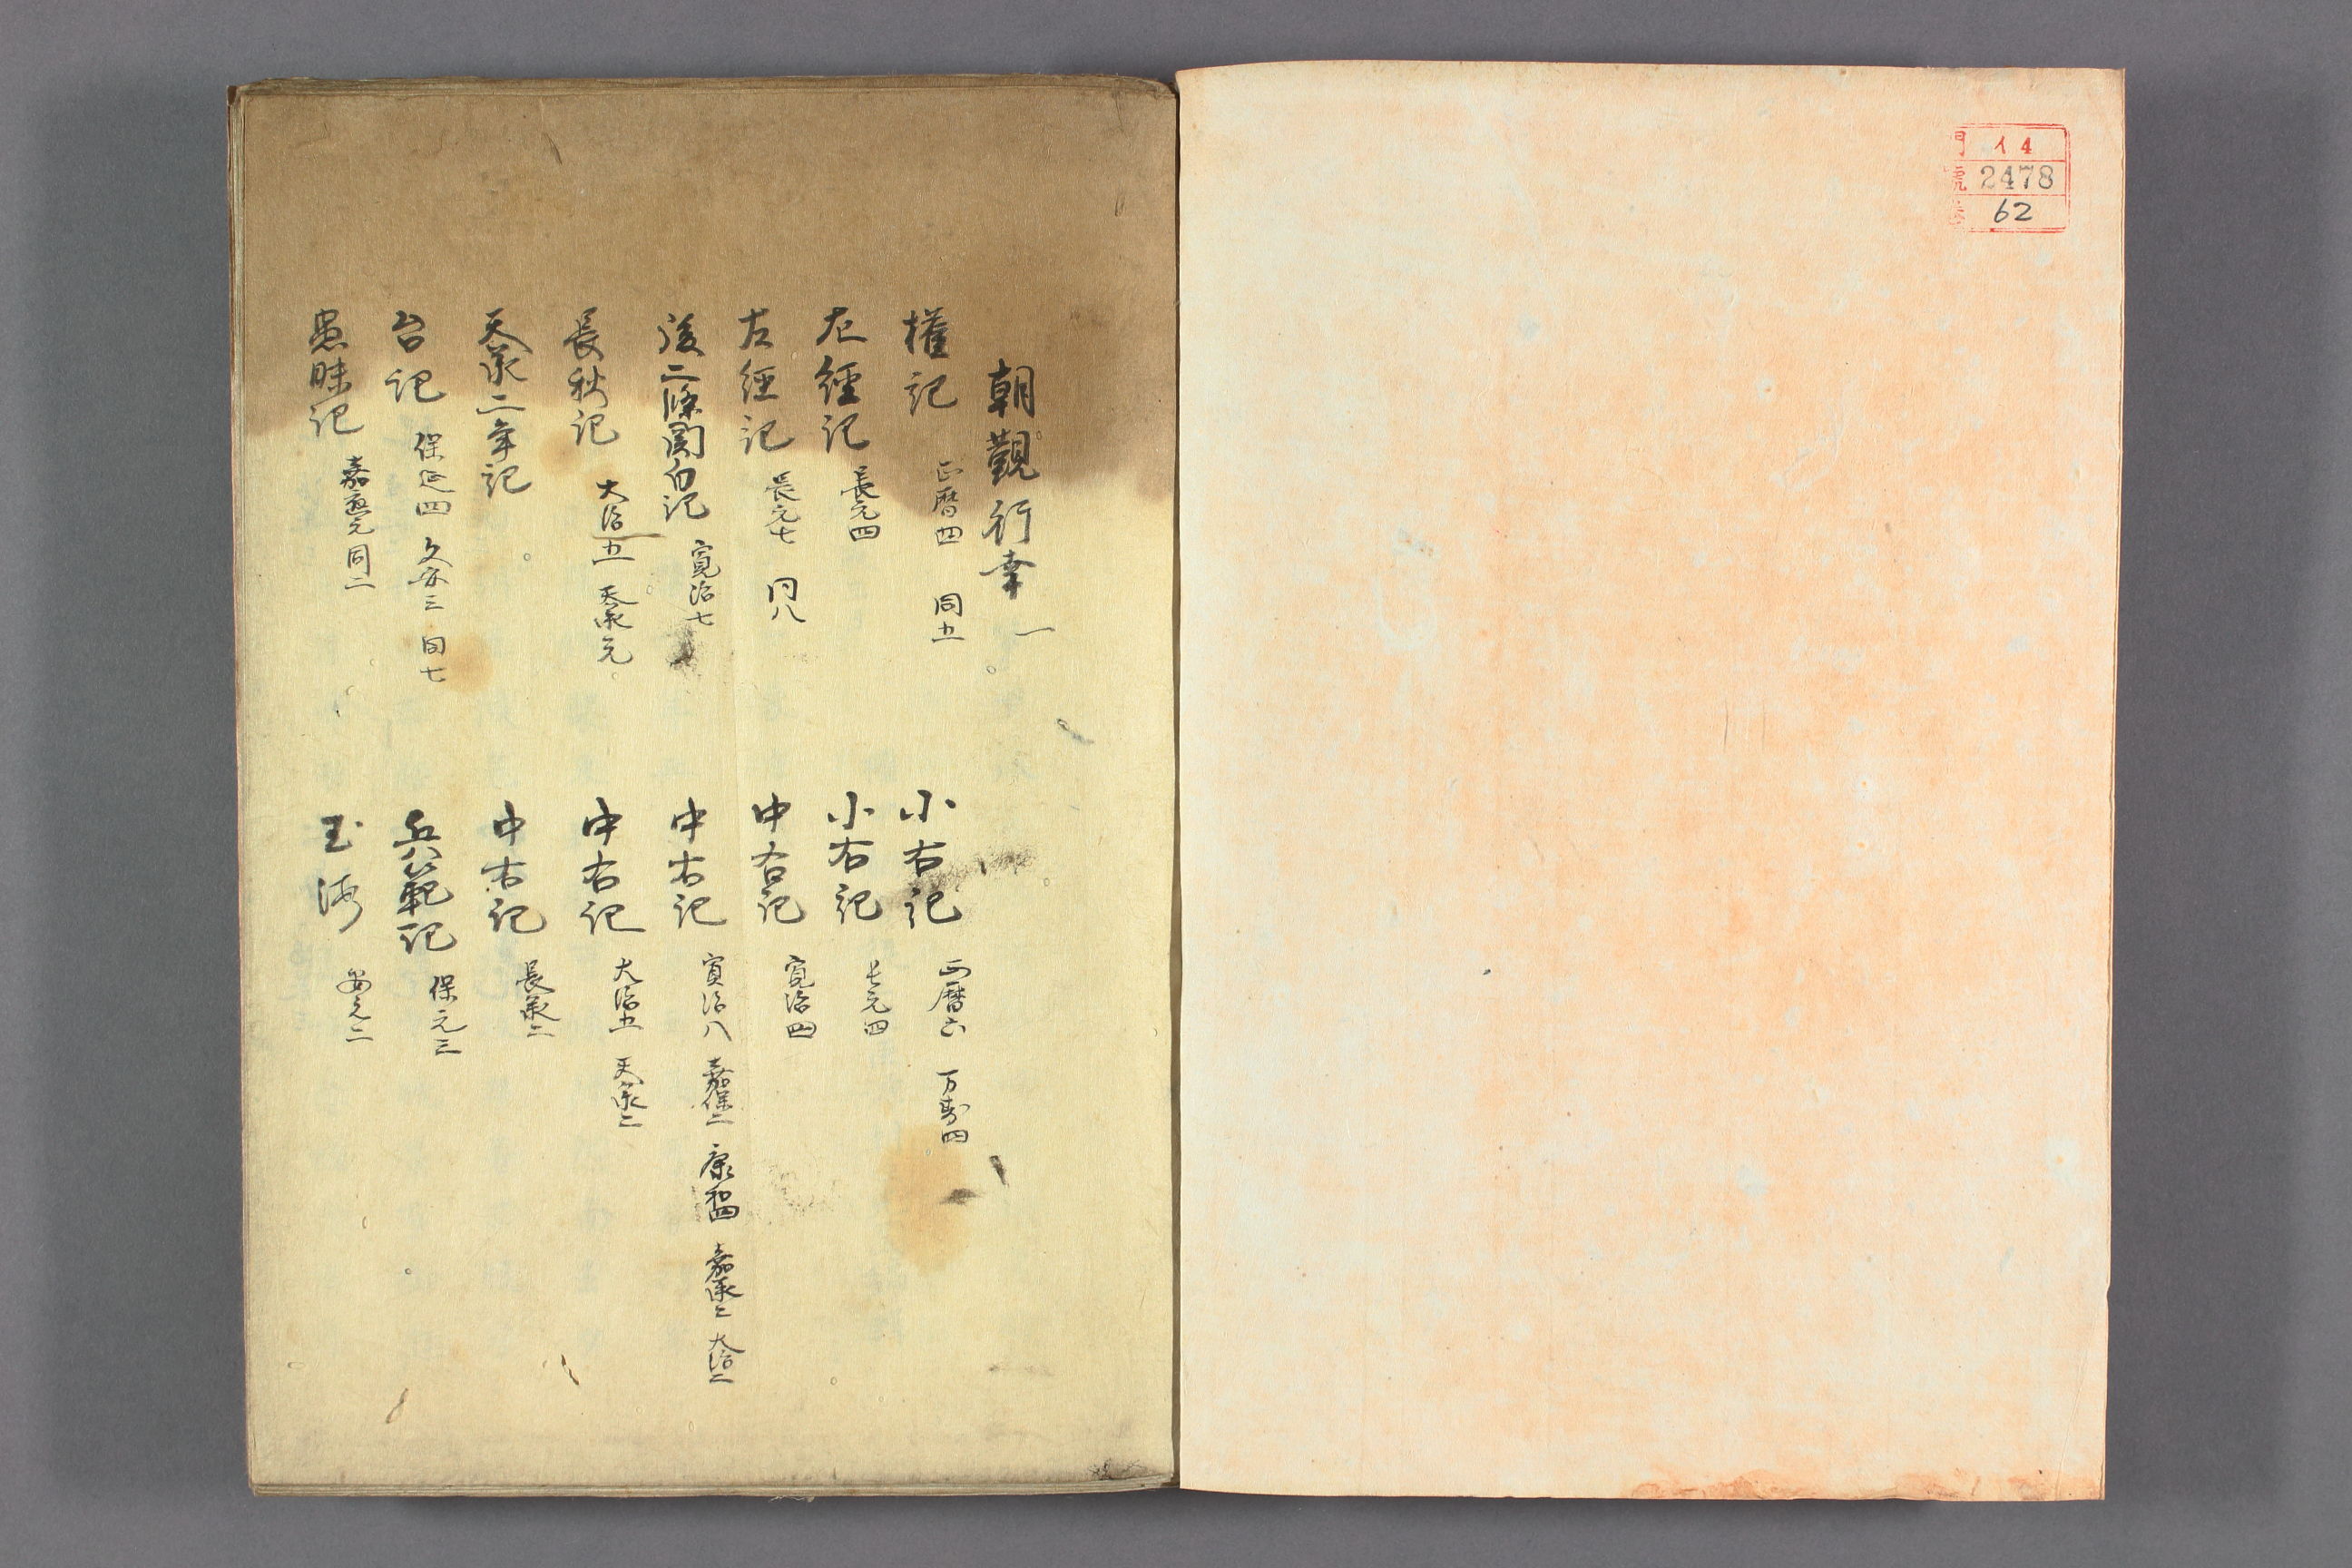 門 イ4
號 2478
巻 62
朝覲行幸 一
權記 正暦四 同五
小右記 正暦六 万寿四
左經記 長元四
小右記 長元四
左經記 長元七 同八
中右記 寛治四
後二條関白記 寛治七
中右記 寛治八 嘉保二 康和四 嘉承二 大治二
長秋記 大治五 天承元
中右記 大治五 天承二
天承二年記
中右記 長承二
台記 保延四 久安三 同七
兵範記 保元三
愚昧記 嘉應元 同二
玉海 安元二